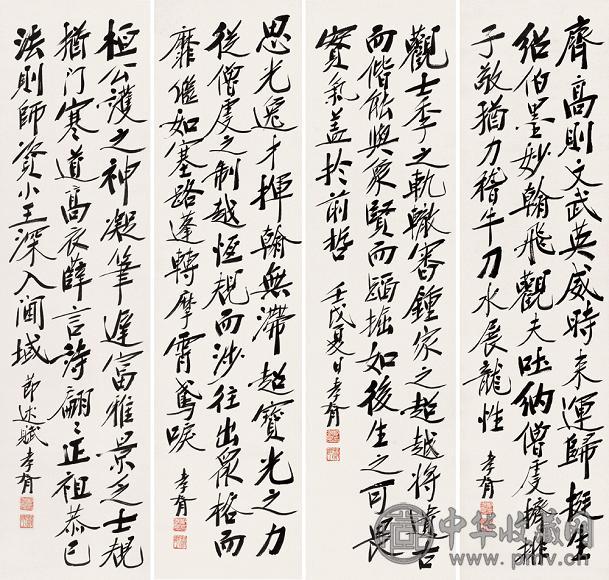 齊高則文武英威時来運歸挺生
紹伯墨妙翰飛觀夫吐納僧虔擠排
子敬猶力稽牛刀水展龍性 孝胥
觀士季之軌轍審鍾家之超越將遺古
而偕能與衆賢而掘如後生之可畏
實氣盖於前哲 壬戌夏日孝胥
思光逸才揮翰無滯超寶光之力
從僧虔之制越恆規而涉往出衆格而
靡繼如塞路蓬轉摩霄鳶唳 孝胥
桓公護之神凝筆遲富雅景之士規
猶門寒道高衣薜言詩翩々正祖恭己
法則師資小王深入閫域 節述賦孝胥
中华收藏网
www.pmv.cn